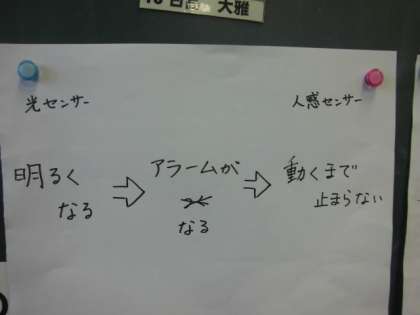 大雅
光センサー
人感センサー
明るく
なる
アラームが
なる
動くまで
止まらない